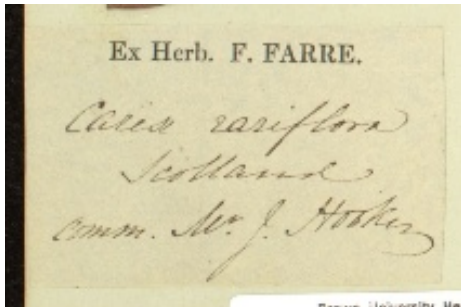 Ex Herb. F. FARRE.
Carex rariflora
Scotland
comm. Mr. J. Hooker
University